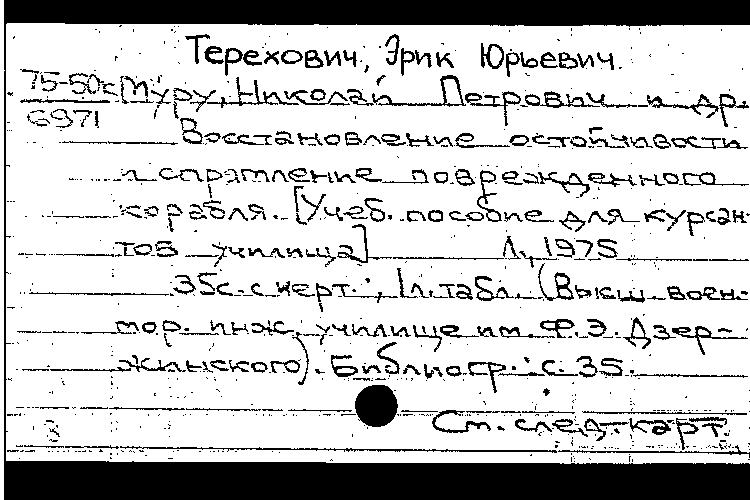 Терехович, Эрик Юрьевич.
75-50к Муру, Николай Петрович и др.
6971
Восстановление остойчивости
и спрямление поврежденного
корабля. [Учеб. пособие для курсан-
тов училища] Л., 1975
35с. с черт.; 1л. табл. (Высш. воен.-
мор. инж. училище им. Ф.Э. Дзер-
жинского). Библиогр.: с. 35.
См. след. карт.